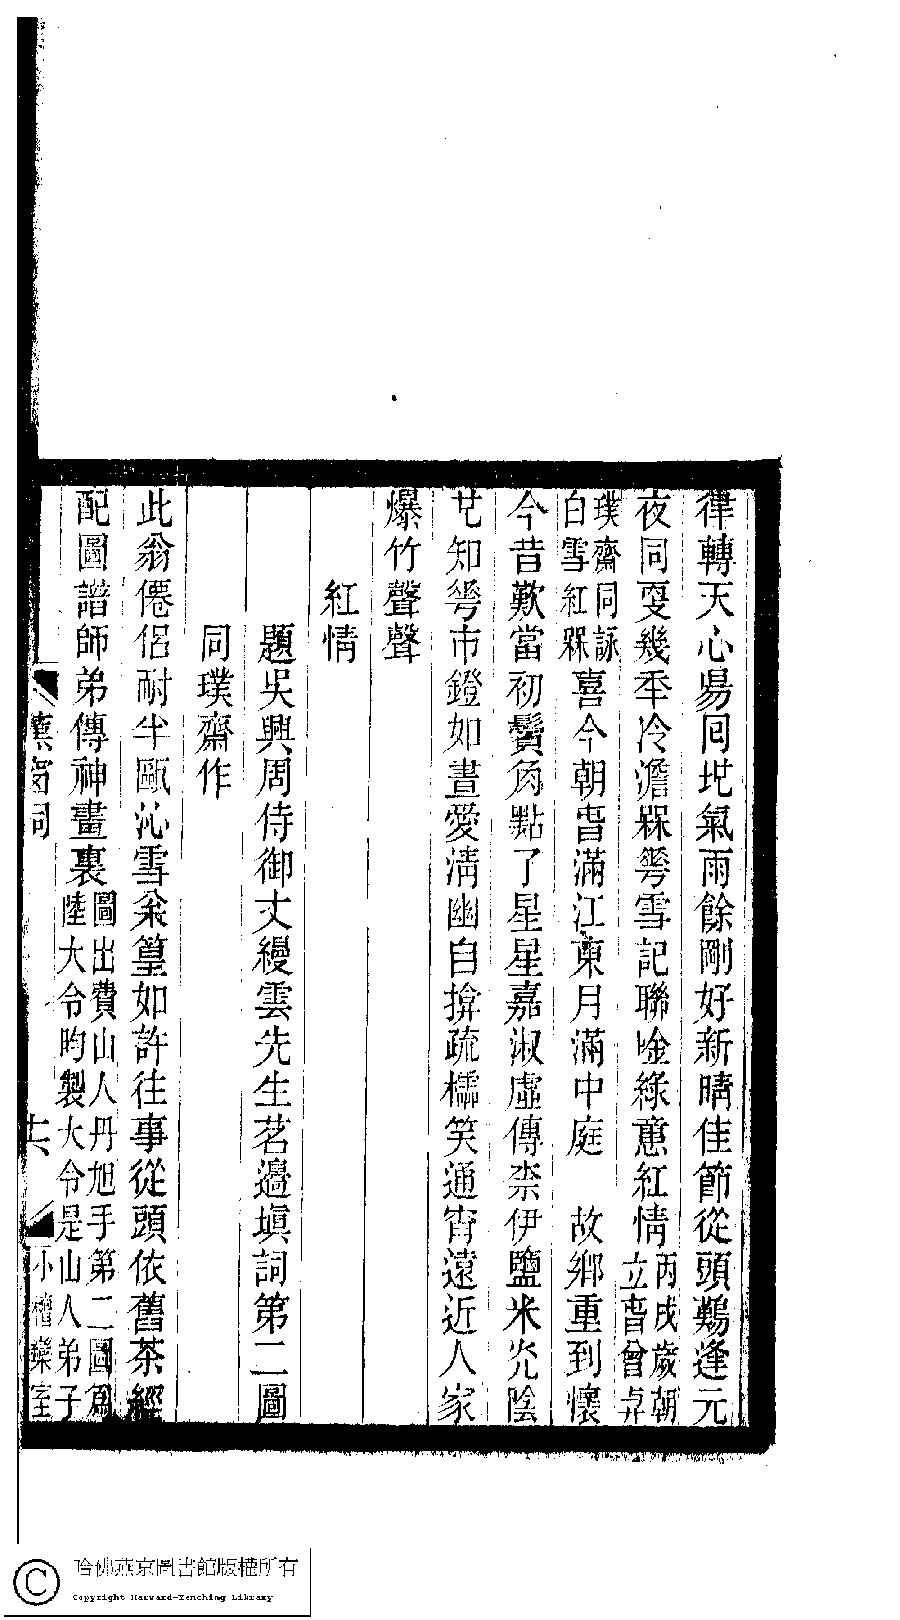 律轉天心昜囘坒氣雨餘剛好新晴佳節從頭鷄逢元
夜同㪅幾秊冷澹槑䔢雪記聯唫綠意紅情丙戌歲朝立曺曾与
璞齋同詠白雪紅槑喜今朝旾滿江東月滿中庭　故鄉重到懷
今昔歎當初鬢角點了星星嘉淑虛傳柰伊鹽米光陰
芚知䔢市鐙如晝愛淸幽自揜疏櫺笑通宵遠近人家
爆竹聲聲
紅情
題吳興周侍御丈縵雲先生茗邊塡詞第二圖
同璞齋作
此翁僊侶耐半甌沁雪籴篁如許往事從頭依舊茶經
配圖譜師弟傳神畫裏圖出費山人丹旭手第二圖爲陸大令昀製大令是山人弟子
窗詞
十六
小檀欒室
哈佛燕京圖書館版權所有
Copyright Harvard-Yenching Library